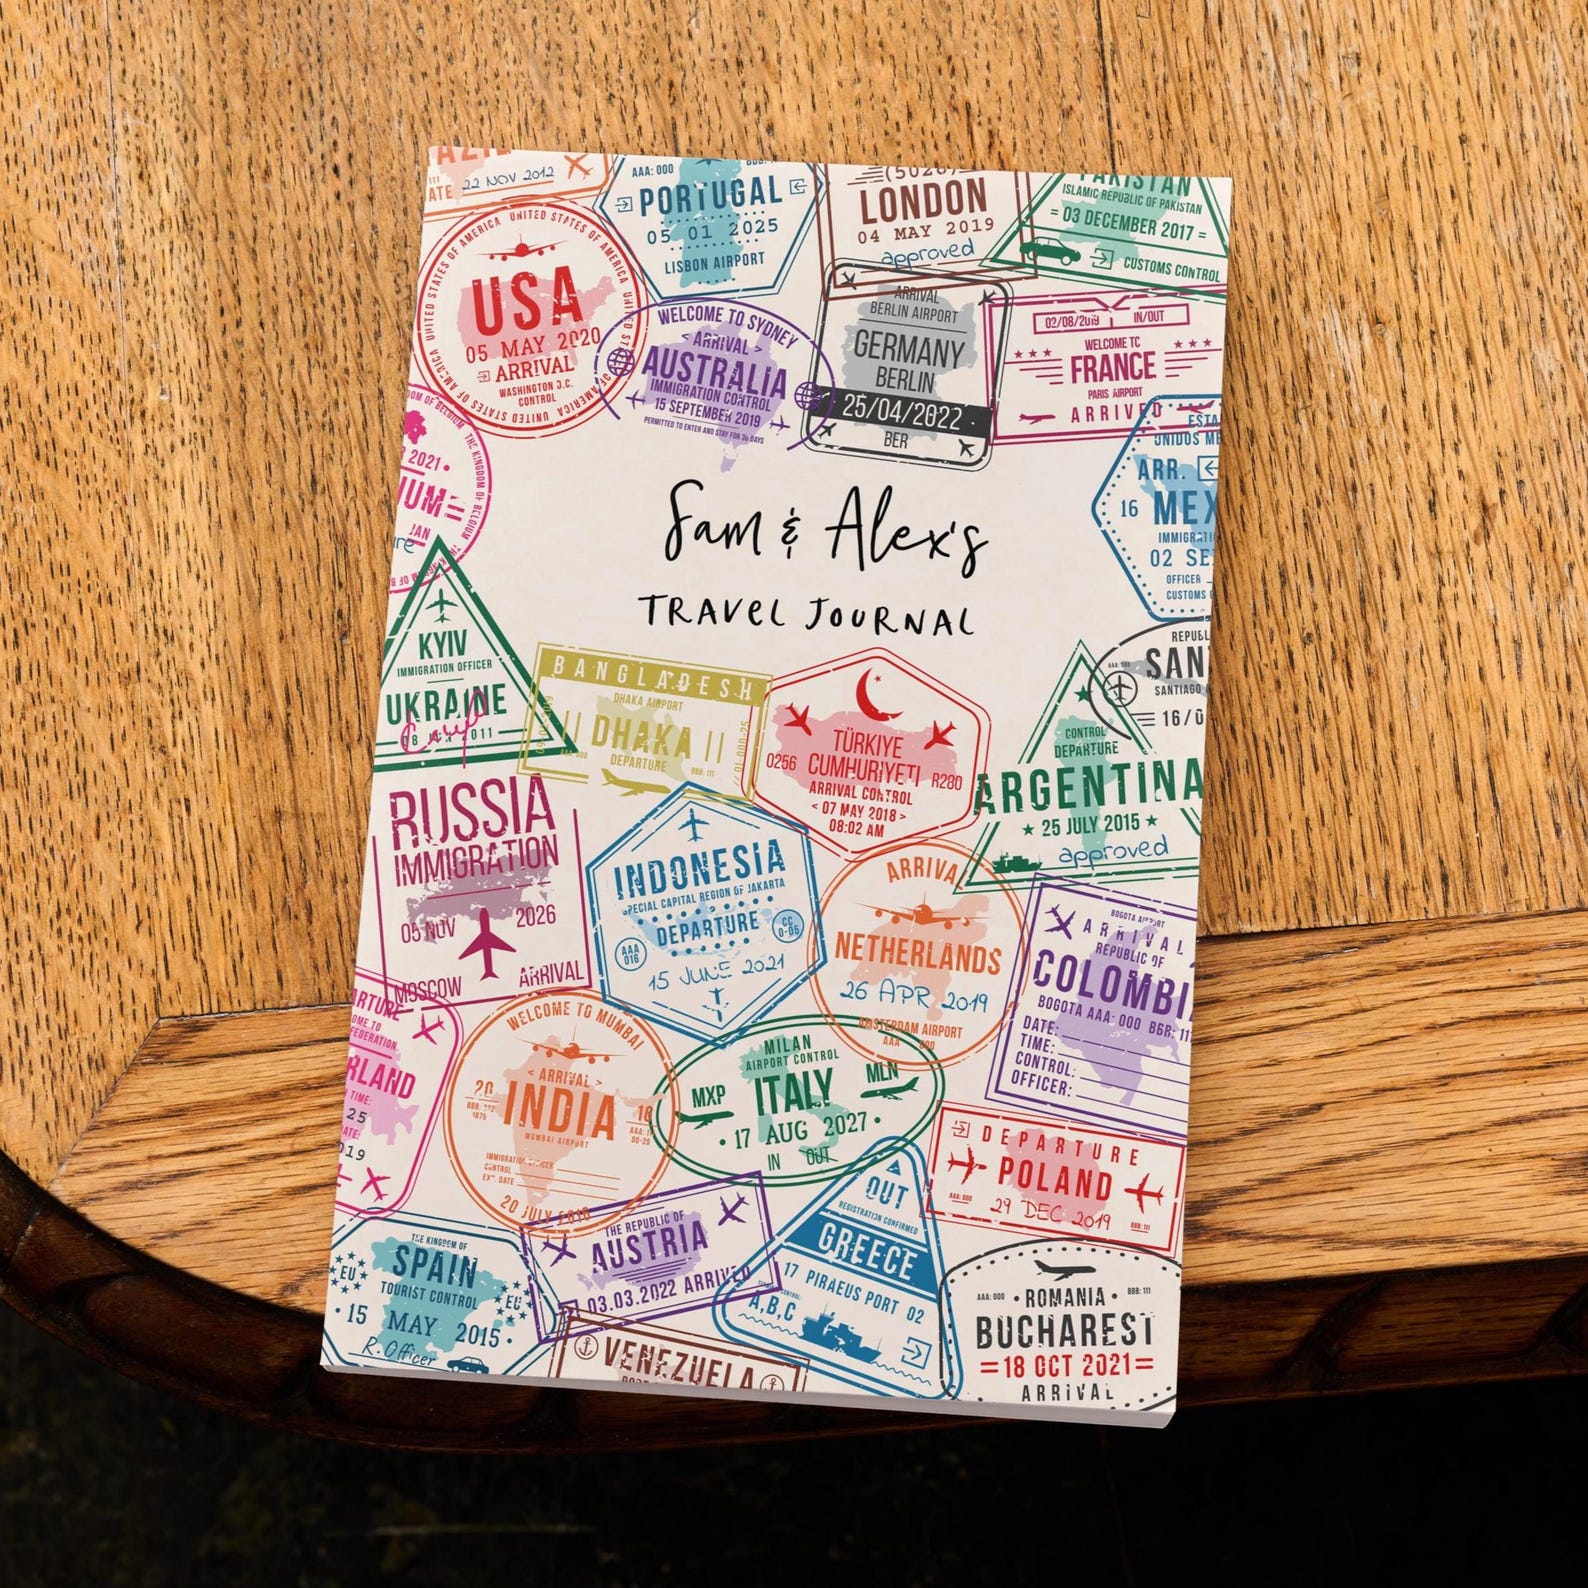 22 NOV 2012
AAA: 000
PORTUGAL
05 01 2025
LISBON AIRPORT
LONDON
04 MAY 2019
approved
PAKISTAN
ISLAMIC REPUBLIC OF PAKISTAN
= 03 DECEMBER 2017 =
CUSTOMS CONTROL
UNITED STATES OF AMERICA UNITED STATES OF AMERICA
USA
05 MAY 2020
ARRIVAL
WASHINGTON D.C.
CONTROL
WELCOME TO SYDNEY
< ARRIVAL >
AUSTRALIA
IMMIGRATION CONTROL
15 SEPTEMBER 2019
PERMITTED TO ENTER AND STAY FOR 30 DAYS
ARRIVAL
BERLIN AIRPORT
GERMANY
BERLIN
25/04/2022
BER
02/08/2019 IN/OUT
WELCOME TO
FRANCE
PARIS AIRPORT
ARRIVED
THE KINGDOM OF BELGIUM
2021
ARR.
16 MEX
02 SE
OFFICER
CUSTOMS
Sam & Alex's
TRAVEL JOURNAL
KYIV
IMMIGRATION OFFICER
UKRAINE
BANGLADESH
DHAKA AIRPORT
DHAKA
DEPARTURE
TÜRKIYE
CUMHURİYETİ
0256 R280
ARRIVAL CONTROL
< 07 MAY 2018 >
08:02 AM
SAN
SANTIAGO
CONTROL
DEPARTURE
ARGENTINA
★ 25 JULY 2015 ★
approved
RUSSIA
IMMIGRATION
05 NOV 2026
MOSCOW ARRIVAL
INDONESIA
SPECIAL CAPITAL REGION OF JAKARTA
DEPARTURE
AAA
016
CC
0-05
15 JUNE 2021
ARRIVAL
NETHERLANDS
26 APR 2019
AMSTERDAM AIRPORT
AAA 000
BOGOTA AIRPORT
ARRIVAL
REPUBLIC OF
COLOMBI
BOGOTA AAA: 000 BBR: 11
DATE:
TIME:
CONTROL:
OFFICER:
RLAND
TIME:
25
WELCOME TO MUMBAI
< ARRIVAL >
20 INDIA 18
MUMBAI AIRPORT
IMMIGRATION OFFICER
CONTROL
20 JULY 2018
MILAN
AIRPORT CONTROL
MXP ITALY MLN
• 17 AUG 2027 •
IN OUT
DEPARTURE
POLAND
29 DEC 2019
THE KINGDOM OF
SPAIN
TOURIST CONTROL
EU EU
• 15 MAY 2015 •
R. Officer
THE REPUBLIC OF
AUSTRIA
03.03.2022 ARRIVED
OUT
REGISTRATION CONFIRMED
GREECE
17 PIRAEUS PORT 02
A,B,C
VENEZUELA
AAA: 000 • ROMANIA • BBB: 111
BUCHAREST
=18 OCT 2021=
ARRIVAL